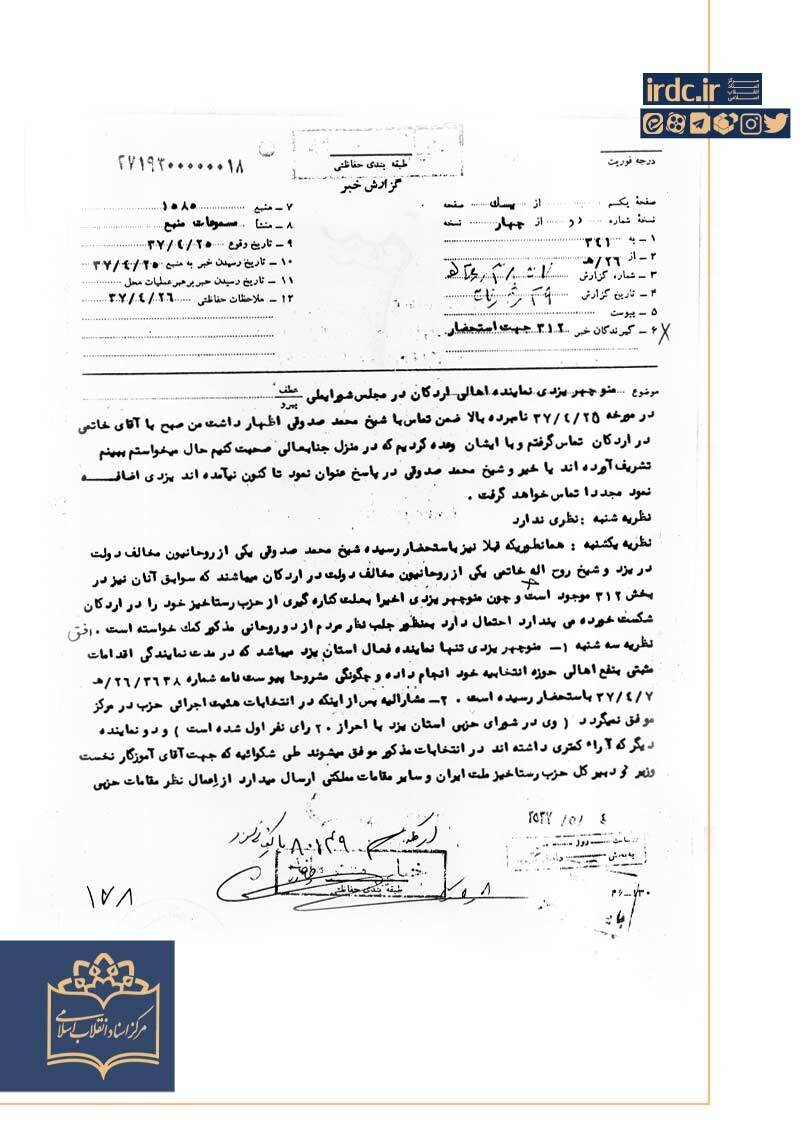 irdc.ir
مرکز اسناد انقلاب اسلامی
۲۷۱۹۳۰۰۰۰۰۰۱۸
طبقه بندی حفاظتی
درجه فوریت
گزارش خبر
صفحهٔ یکم از یک صفحه
نسخهٔ شماره دو از چهار نسخه
۱ - به ۳۴۱
۲ - از ۲۶/هـ
۳ - شماره گزارش
۴ - تاریخ گزارش
۵ - پیوست
۶ - گیرندگان خبر ۳۱۲ جهت استحضار
۷ - منبع ۱۵۸۵
۸ - منشأ مسموعات منبع
۹ - تاریخ وقوع ۳۷/۴/۲۵
۱۰ - تاریخ رسیدن خبر به منبع ۳۷/۴/۲۵
۱۱ - تاریخ رسیدن خبر برهبر عملیات محل
۱۲ - ملاحظات حفاظتی ۳۷/۴/۲۶
موضوع منوچهر یزدی نماینده اهالی اردکان در مجلس شورایملی عطف پیرو
در مورخه ۳۷/۴/۲۵ نامبرده بالا ضمن تماس با شیخ محمد صدوقی اظهار داشت من صبح با آقای خاتمی
در اردکان تماس گرفتم و با ایشان وعده کردیم که در منزل جنابعالی صحبت کنیم حال میخواستم ببینم
تشریف آورده اند یا خیر و شیخ محمد صدوقی در پاسخ عنوان نمود تا کنون نیآمده اند یزدی اضافه
نمود مجددا تماس خواهد گرفت .
نظریه شنبه : نظری ندارد
نظریه یکشنبه : همانطوریکه قبلا نیز باستحضار رسیده شیخ محمد صدوقی یکی از روحانیون مخالف دولت
در یزد و شیخ روح اله خاتمی یکی از روحانیون مخالف دولت در اردکان میباشند که سوابق آنان نیز در
بخش ۳۱۲ موجود است و چون منوچهر یزدی اخیرا بعلت کناره گیری از حزب رستاخیز خود را در اردکان
شکست خورده می پندارد احتمال دارد بمنظور جلب نظر مردم از دو روحانی مذکور کمک خواسته است . افق
نظریه سه شنبه ۱- منوچهر یزدی تنها نماینده فعال استان یزد میباشد که در مدت نمایندگی اقدامات
مثبتی بنفع اهالی حوزه انتخابیه خود انجام داده و چگونگی مشروحا پیوست نامه شماره ۲۶/۳۶۳۸/هـ
۳۷/۴/۷ باستحضار رسیده است . ۲- مشارالیه پس از اینکه در انتخابات هئیت اجرائی حزب در مرکز
موفق نمیگردد ( وی در شورای حزبی استان یزد با احراز ۲۰ رای نفر اول شده است ) و دو نماینده
دیگر که آراء کمتری داشته اند در انتخابات مذکور موفق میشوند طی شکوائیه که جهت آقای آموزگار نخست
وزیر و دبیر کل حزب رستاخیز ملت ایران و سایر مقامات مملکتی ارسال میدارد از اعمال نظر مقامات حزبی
۲۵۳۷/۵/۴
۸۰۱۴۹
طبقه بندی حفاظتی
۱۷۸
مرکز اسناد انقلاب اسلامی